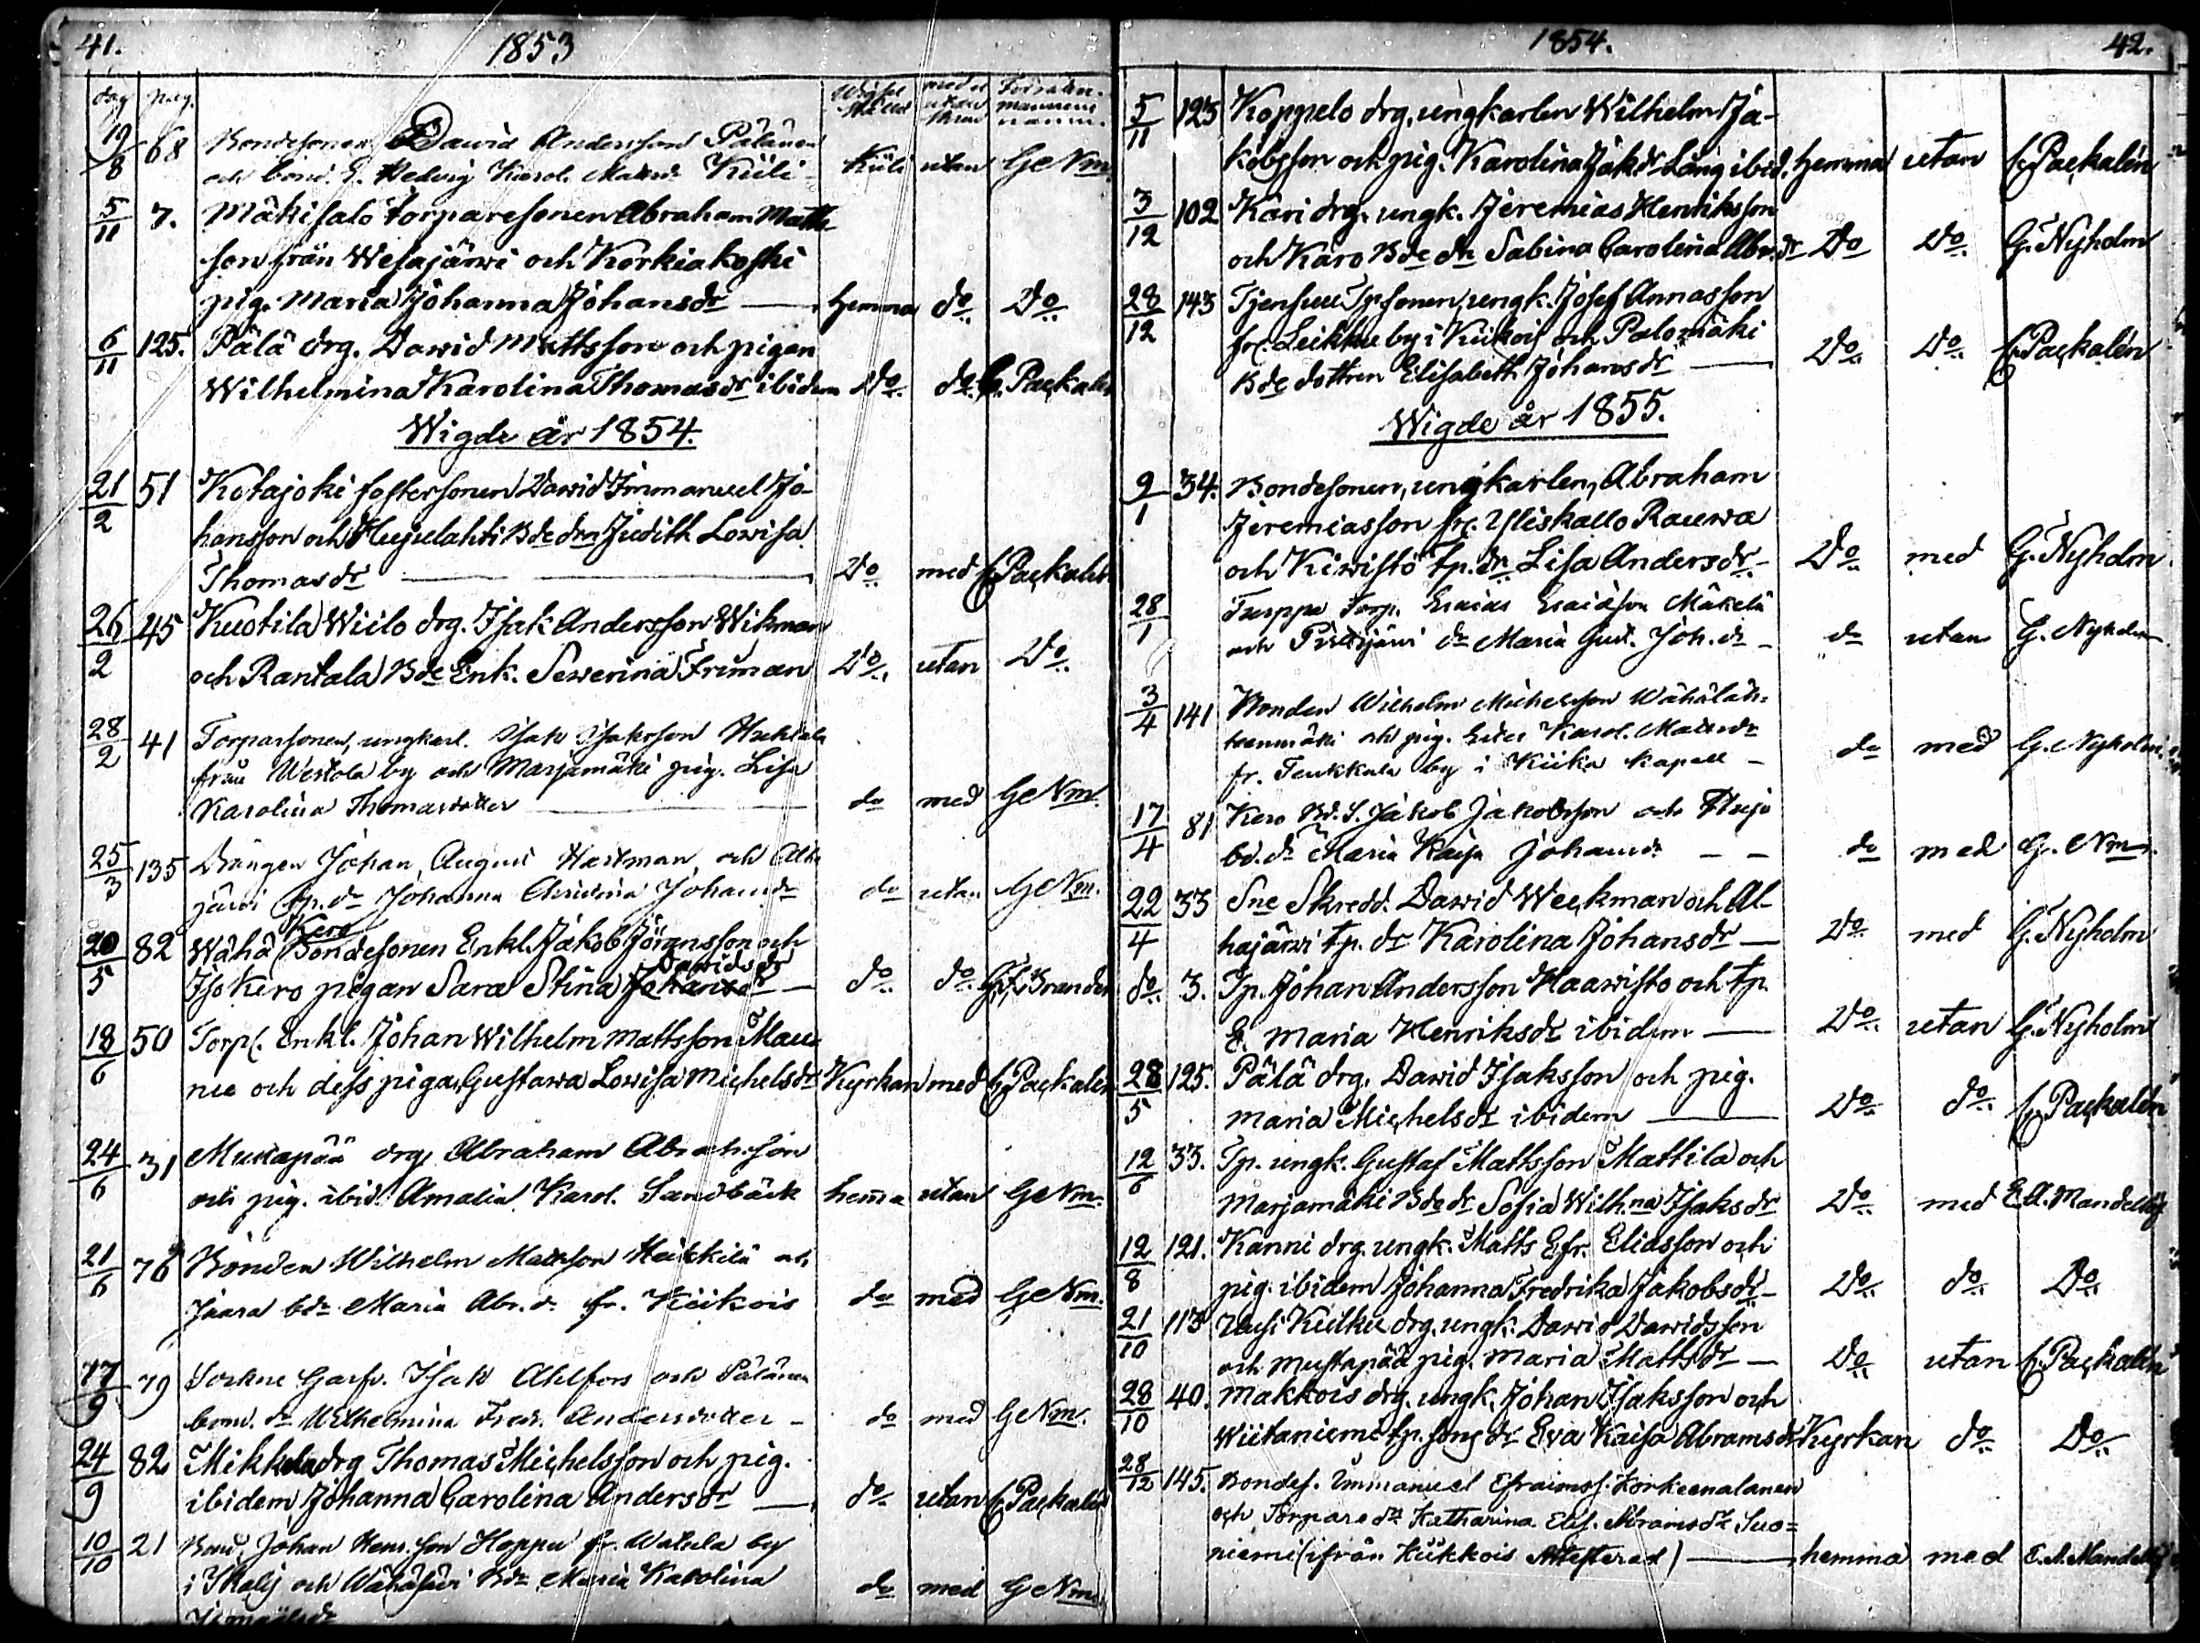 41.
1853
dag pag.
med el utan
19/8 68 Bondesonen David Andersson Pälänen
och bond. E. Hedvig Karol. Mattsdr Kiili - Kiili utan GeNm.
5/11 7. Mäkisalo torparesonen Abraham Matts-
son från Wesajärwi och Korkiakoski
pig. Maria Johanna Johansdr — hemma do Do
6/11 125. Pälä drg. Dawid Mattsson och pigan
Wilhelmina Karolina Thomasdr ibidem Do. do. C. Packalén
Wigde år 1854.
21/2 51 Kotajoki fostersonen Dawid Immanuel Jo-
hansson och Hujulahti Bde drn Judith Lowisa
Thomasdr — Do med C. Packalén
26/2 45 Kuotila Wiilo drg. Isak Andersson Wikman
och Rantala Bde Enk. Sewerina Friman Do. utan Do.
28/2 41 Torparsonen, ungkarl. Isak Isaksson
från Westola by och Marjamäki pig. Lisa
Karolina Thomasdotter — do med GeNm.
25/3 135 Drängen Johan August Hartman och Alha
järvi tp. dr Johanna Christina Johansdr do utan GeNm.
Kero
20/5 82 Wähä Bondesonen Enkl. Jakob Göransson och
Dawidsdr
Iso Kero pigan Sara Stina Johansdr — do do. Brander
18/6 50 Torp. Enkl. Johan Wilhelm Mattsson Mau-
nu och dess piga, Gustawa Lowisa Michelsdr Kyrkan med C. Packalén
24/6 31 Mustapää drg Abraham Abrahsson
och pig. ibid. Amalia Karol. Sandbäck hemma utan GeNm.
21/6 76 Bonden Wilhelm Mattsson Heikkilä och
Jaara bdr Maria Abr. dr fr. Kiikois do med GeNm.
17/9 79 Sockne Garfv. Isak Ahlfors och Pälänen
bond. dr Wilhelmina Fred. Andersdotter - do med GeNm.
24/9 82 Mikkola drg Thomas Michelsson och pig.
ibidem, Johanna Carolina Andersdr — do utan C. Packalén
10/10 21 Bond. Johan Hens.son Hoppu fr. Watula by
i Ikalis och Wähäsuvi Bdr Maria Karolina do med GeNm.
1854. 42.
5/11 125 Koppelo drg, ungkarlen Wilhelm Ja-
kobsson och pig. Karolina Jakdr Lång ibid. hemma utan C. Packalén
3/12 102 Kari drg. ungk. Jeremias Henriksson
och Karo Bde dr Sabina Carolina Abr.dr Do Do. G. Nyholm
28/12 143 Tjensuu Tpsonen, ungk. Josef Annasson
fr. Leikku by i Kiikois och Palomäki
Bde dottren Elisabeth Johansdr — Do Do. C. Packalén
Wigde år 1855.
9/1 34. Bondesonen, ungkarlen, Abraham
Jeremiasson fr. Yliskallo Rauwa
och Kiwistö tp. dr Lisa Andersdr - Do. med G. Nyholm
28/1 Torp. Esaias Esaiasson Mäkelä
och dr Maria Gust. Joh. dr - do utan G. Nyholm
3/4 141 Bonden Wilhelm Michelsson Wähälah-
teenmäki och pig. Karol. Mattsdr
fr. by i Kiika kapell - do med G. Nyholm
17/4 81 Kero Bd. S. Jakob Jakobsson och
bd. dr Maria Kaisa Johansdr. — do med G. Nm.
22/4 33 Sne Skredd. Dawid Weckman och Al-
hajärwi tp. dr Karolina Johansdr — Do med G. Nyholm
do. 3. Tp. Johan Andersson Haawisto och tp.
E. Maria Henriksdr ibidem — Do utan G. Nyholm
28/5 125. Pälä drg, Dawid Isaksson och pig.
Maria Michelsdr ibidem — Do. do. C. Packalén
12/6 35. Tp. ungk. Gustaf Mattsson Mattila och
Marjamäki Bde dr Sofia Wilh.na Isaksdr Do. med E. A. Mandellöf
12/8 121. Kanni drg. ungk. Matts Efr. Eliasson och
pig. ibidem Johanna Fredrika Jakobsdr - Do. do. Do.
21/10 113 Uusi Kulku drg. ungk. Dawid Dawidsson
och Mustapää pig. Maria Mattsdr — Do. utan C. Packalén
28/10 40. Makkois drg. ungk. Johan Isaksson och
Wiitaniemi tp. sons dr Eva Kaisa Abramsdr Kyrkan do Do.
28/12 145. Bondes. Immanuel Efraimss. Korkeenalanen
och Torpare dr Katharina Elis. Abramsdr Suo=
niemi (ifrån Kiikkois Attesterad) — hemma med E. A. Mandellöf